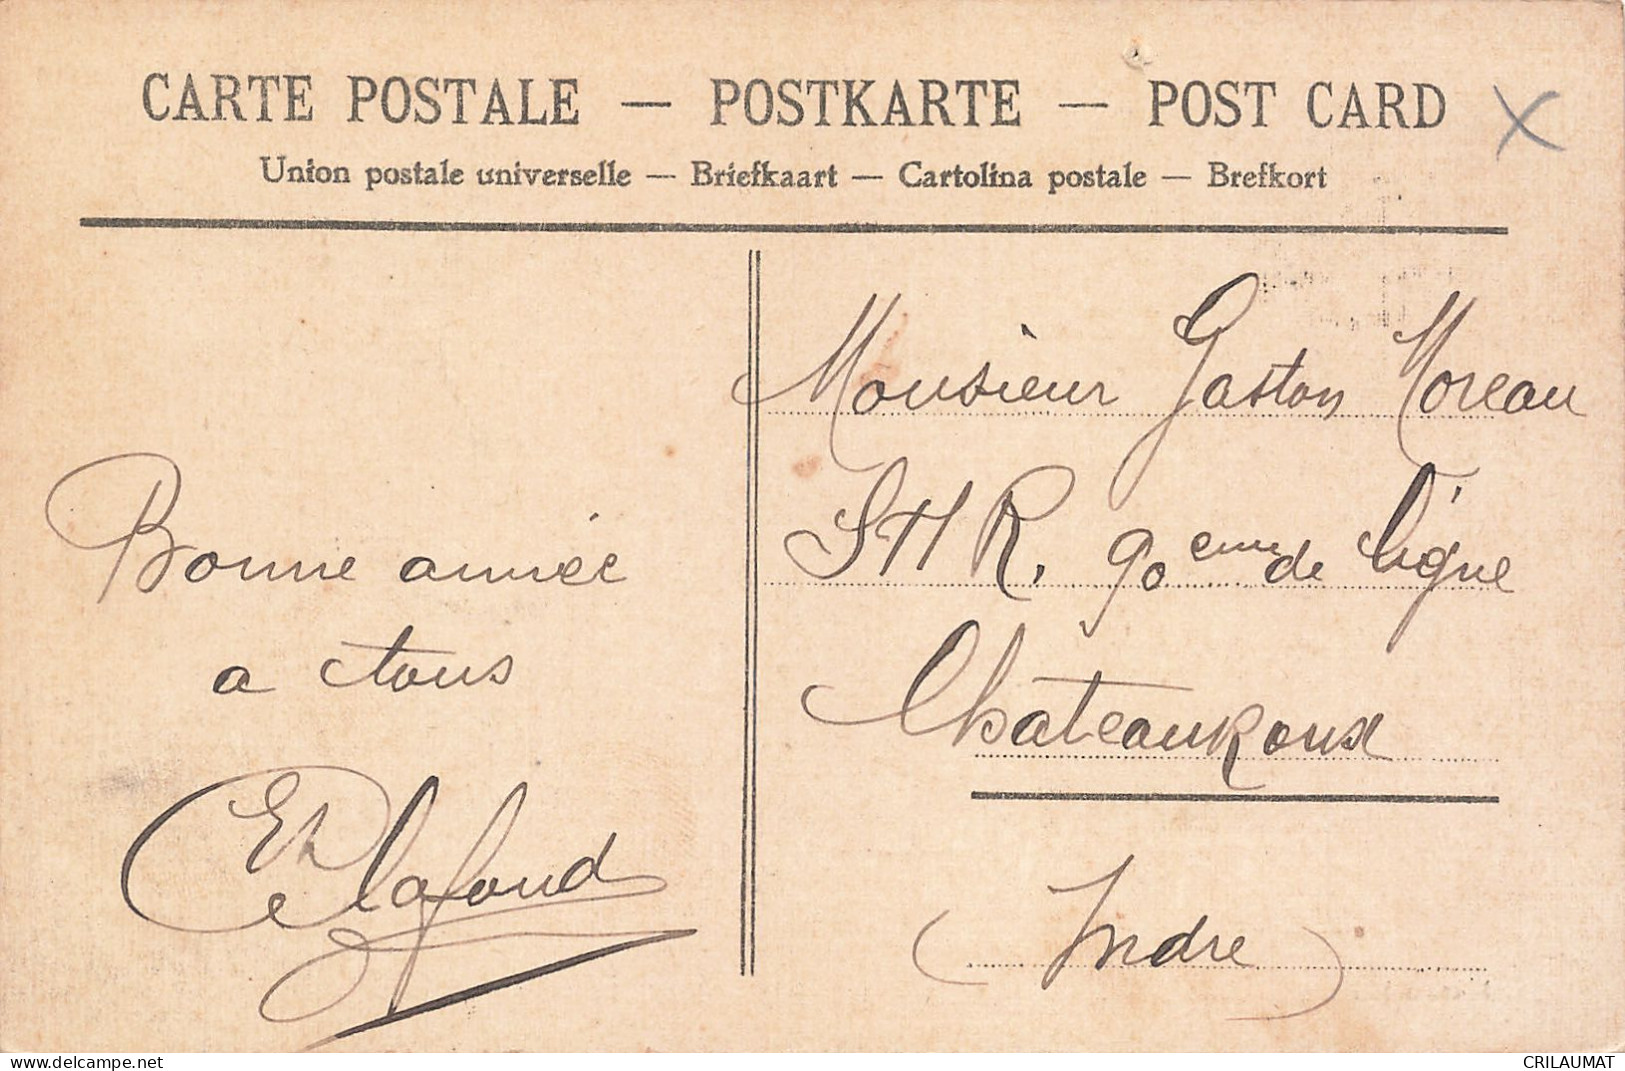 CARTE POSTALE — POSTKARTE — POST CARD
Union postale universelle — Briefkaart — Cartolina postale — Brefkort
Bonne année
a tous
Lafond
Monsieur Gaston Moreau
SHR, 90eme de ligne
Chateauroux
(Indre)
www.delcampe.net
CRILAUMAT